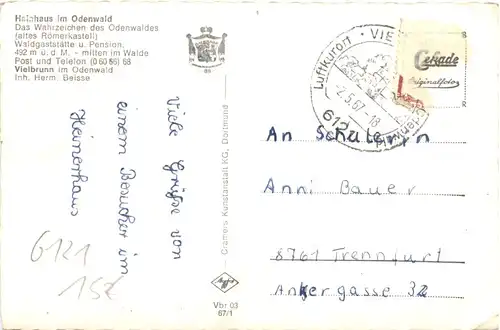 Hainhaus im Odenwald
Das Wahrzeichen des Odenwaldes
(altes Römerkastell)
Waldgaststätte u. Pension.
492 m ü. d. M. - mitten im Walde
Post und Telefon (0 60 66) 68
Vielbrunn im Odenwald
Inh. Herm. Beisse
Viele Grüße von
einem Besucher im
Heinerhaus
6121
15€
Cramers Kunstanstalt KG, Dortmund
Vbr 03
67/1
Luftkurort · VIE
-2.5.67.-18
612
Odenwald
Cekade
Originalfoto
An Schule
Anni Bauer
8761 Trennfurt
Ankergasse 32